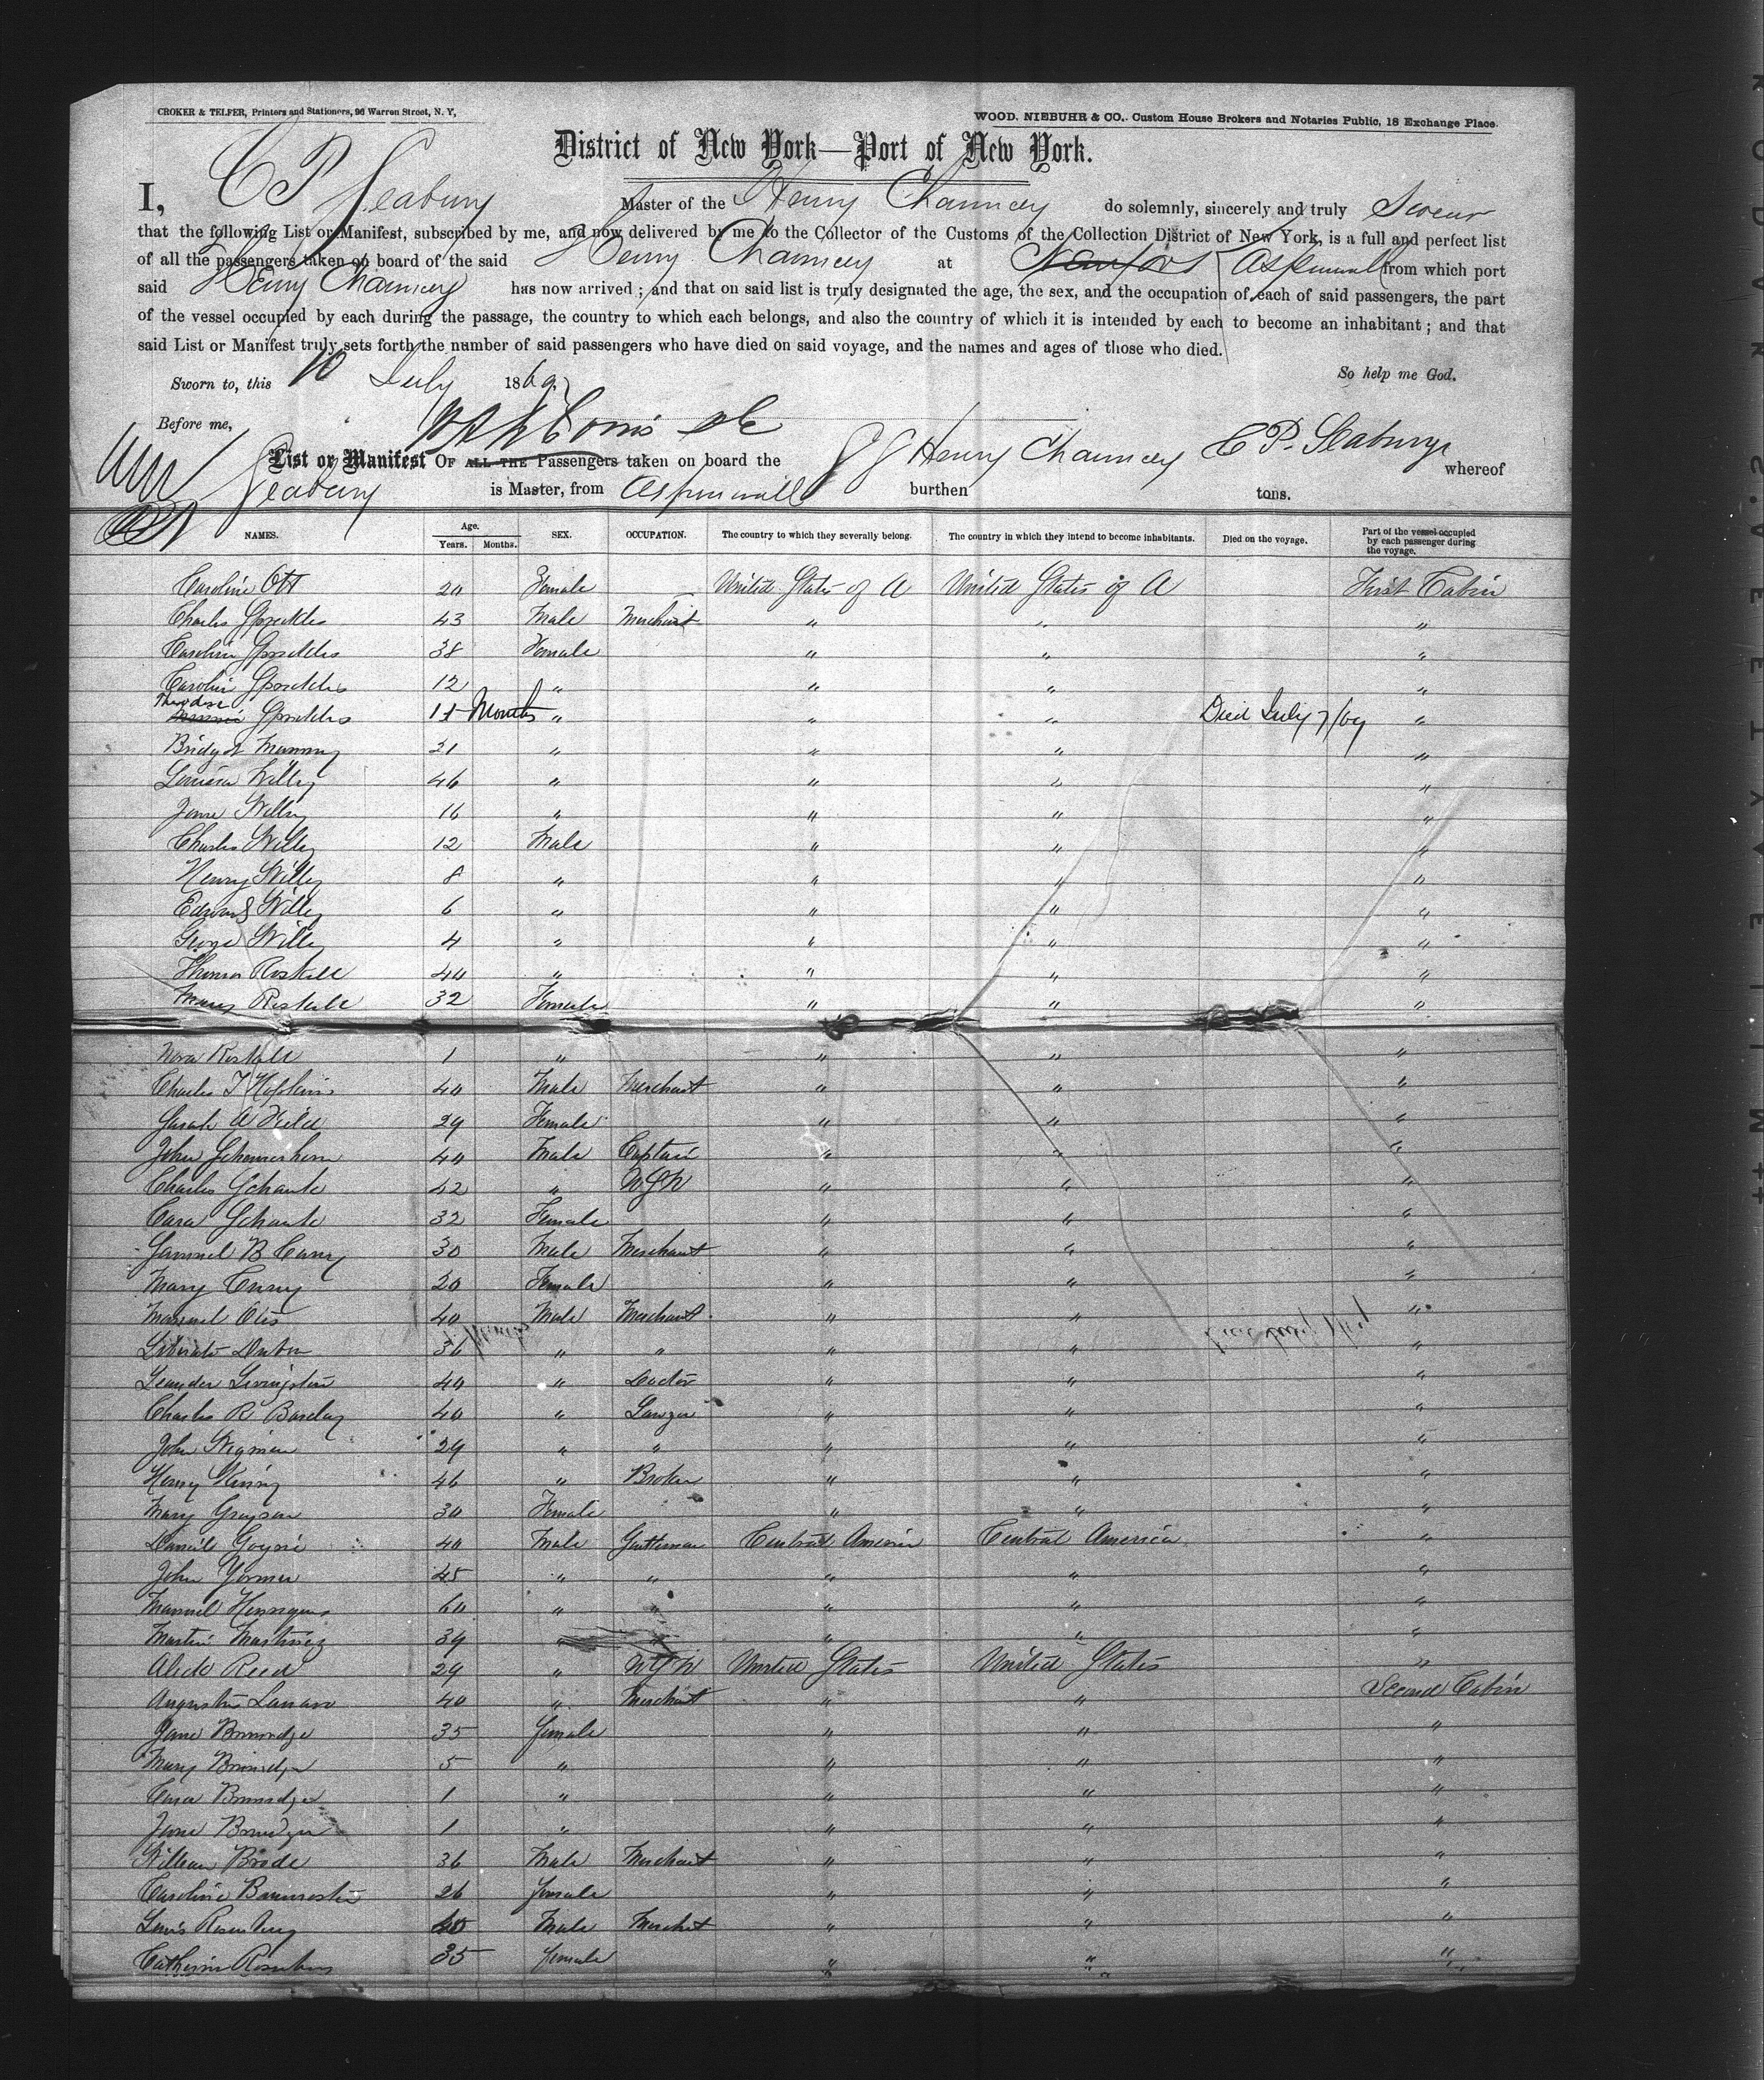 CROKER & TELFER, Printers and Stationers, 96 Warren Street, N. Y,
WOOD. NIEBUHR & CO,. Custom House Brokers and Notaries Public, 18 Exchange Place.
District of New York—Port of New York.
I, C P Seabury Master of the Henry Chauncey do solemnly, sincerely and truly Swear
that the following List or Manifest, subscribed by me, and now delivered by me to the Collector of the Customs of the Collection District of New York, is a full and perfect list
of all the passengers taken on board of the said Henry Chauncey at Aspinwall from which port
said Henry Chauncey has now arrived ; and that on said list is truly designated the age, the sex, and the occupation of each of said passengers, the part
of the vessel occupied by each during the passage, the country to which each belongs, and also the country of which it is intended by each to become an inhabitant ; and that
said List or Manifest truly sets forth the number of said passengers who have died on said voyage, and the names and ages of those who died.
Sworn to, this 10 July 1869 So help me God.
Before me,
C P. Seabury
List or Manifest OF ALL THE Passengers taken on board the SS Henry Chauncey whereof
Seabury is Master, from Aspinwall burthen tons.
NAMES. Age. Years. Months. SEX. OCCUPATION. The country to which they severally belong. The country in which they intend to become inhabitants. Died on the voyage. Part of the vessel occupied by each passenger during the voyage.
Caroline Ott 20 Female United States of A United States of A First Cabin
Charles Spreckles 43 Male Merchant " " "
Caroline Spreckles 38 Female " " "
Caroline Spreckles 12 " " " "
Theodore Spreckles 11 Months " " " Died July 7/69 "
Bridget 21 " " " "
Louisa Willey 46 " " " "
Jane Willey 16 " " " "
Charles Willey 12 Male " " "
Henry Willey 8 " " " "
Edward Willey 6 " " " "
George Willey 4 " " " "
Thomas Roskell 40 " " " "
Mary Roskell 32 Female " " "
Nora Roskell 1 " " " "
Charles T Hopkins 40 Male Merchant " " "
Sarah A Field 29 Female " " "
John Schemerhorn 40 Male Captain " " "
Charles Schank 42 " USN " " "
Cara Schank 32 Female " " "
Samuel B Curry 30 Male Merchant " " "
Mary Curry 20 Female " " "
Manuel Otis 40 Male Merchant " " "
36 " " " " "
Leander Livingston 40 " Doctor " " "
Charles R Barclay 40 " Lawyer " " "
John Wigman 29 " " " " "
Henry 46 " Broker " " "
Mary Grayson 30 Female " " "
40 Male Gentleman Central America Central America "
John 45 " " " " "
Manuel 60 " " " " "
Martin Martinez 39 " " " " "
Reed 29 " USN United States United States "
40 " Merchant " " Second Cabin
Jane 35 female " " "
Mary 5 " " " "
1 " " " "
Jane 1 " " " "
William Brode 36 Male Merchant " " "
Caroline 26 female " " "
Louis Rosenberg 40 Male Merchant " " "
Catherine Rosenberg 35 female " " "